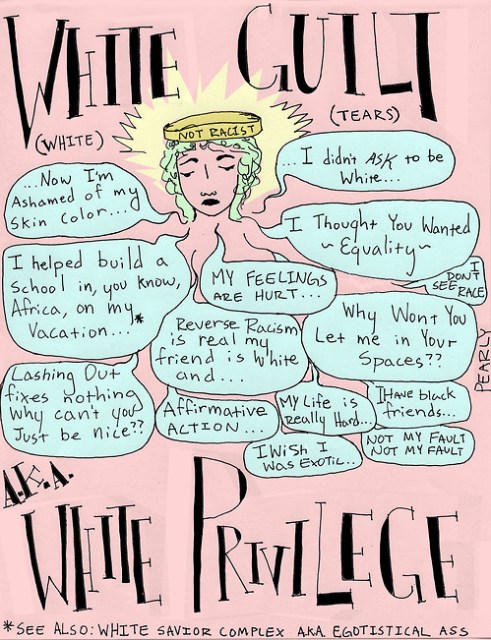 WHITE GUILT
(WHITE)
(TEARS)
NOT RACIST
...I didn't ASK to be
White...
...Now I'm
Ashamed of my
Skin Color...
I Thought You Wanted
~Equality~
I helped build a
School in, you know,
Africa, on my
Vacation...*
MY FEELINGS
ARE HURT...
I
DON'T
SEE RACE
Reverse Racism
is real my
friend is White
and...
Why Wont You
Let me in Your
Spaces??
PEARLY
Lashing Out
fixes nothing
Why can't you
Just be nice??
Affirmative
ACTION...
MY Life is
Really Hard...
I HAve black
friends...
I Wish I
Was Exotic..
NOT MY FAULT
NOT MY FAULT
A.K.A.
WHITE PRIVILEGE
*SEE ALSO: WHITE SAVIOR COMPLEX A.K.A EGOTISTICAL ASS